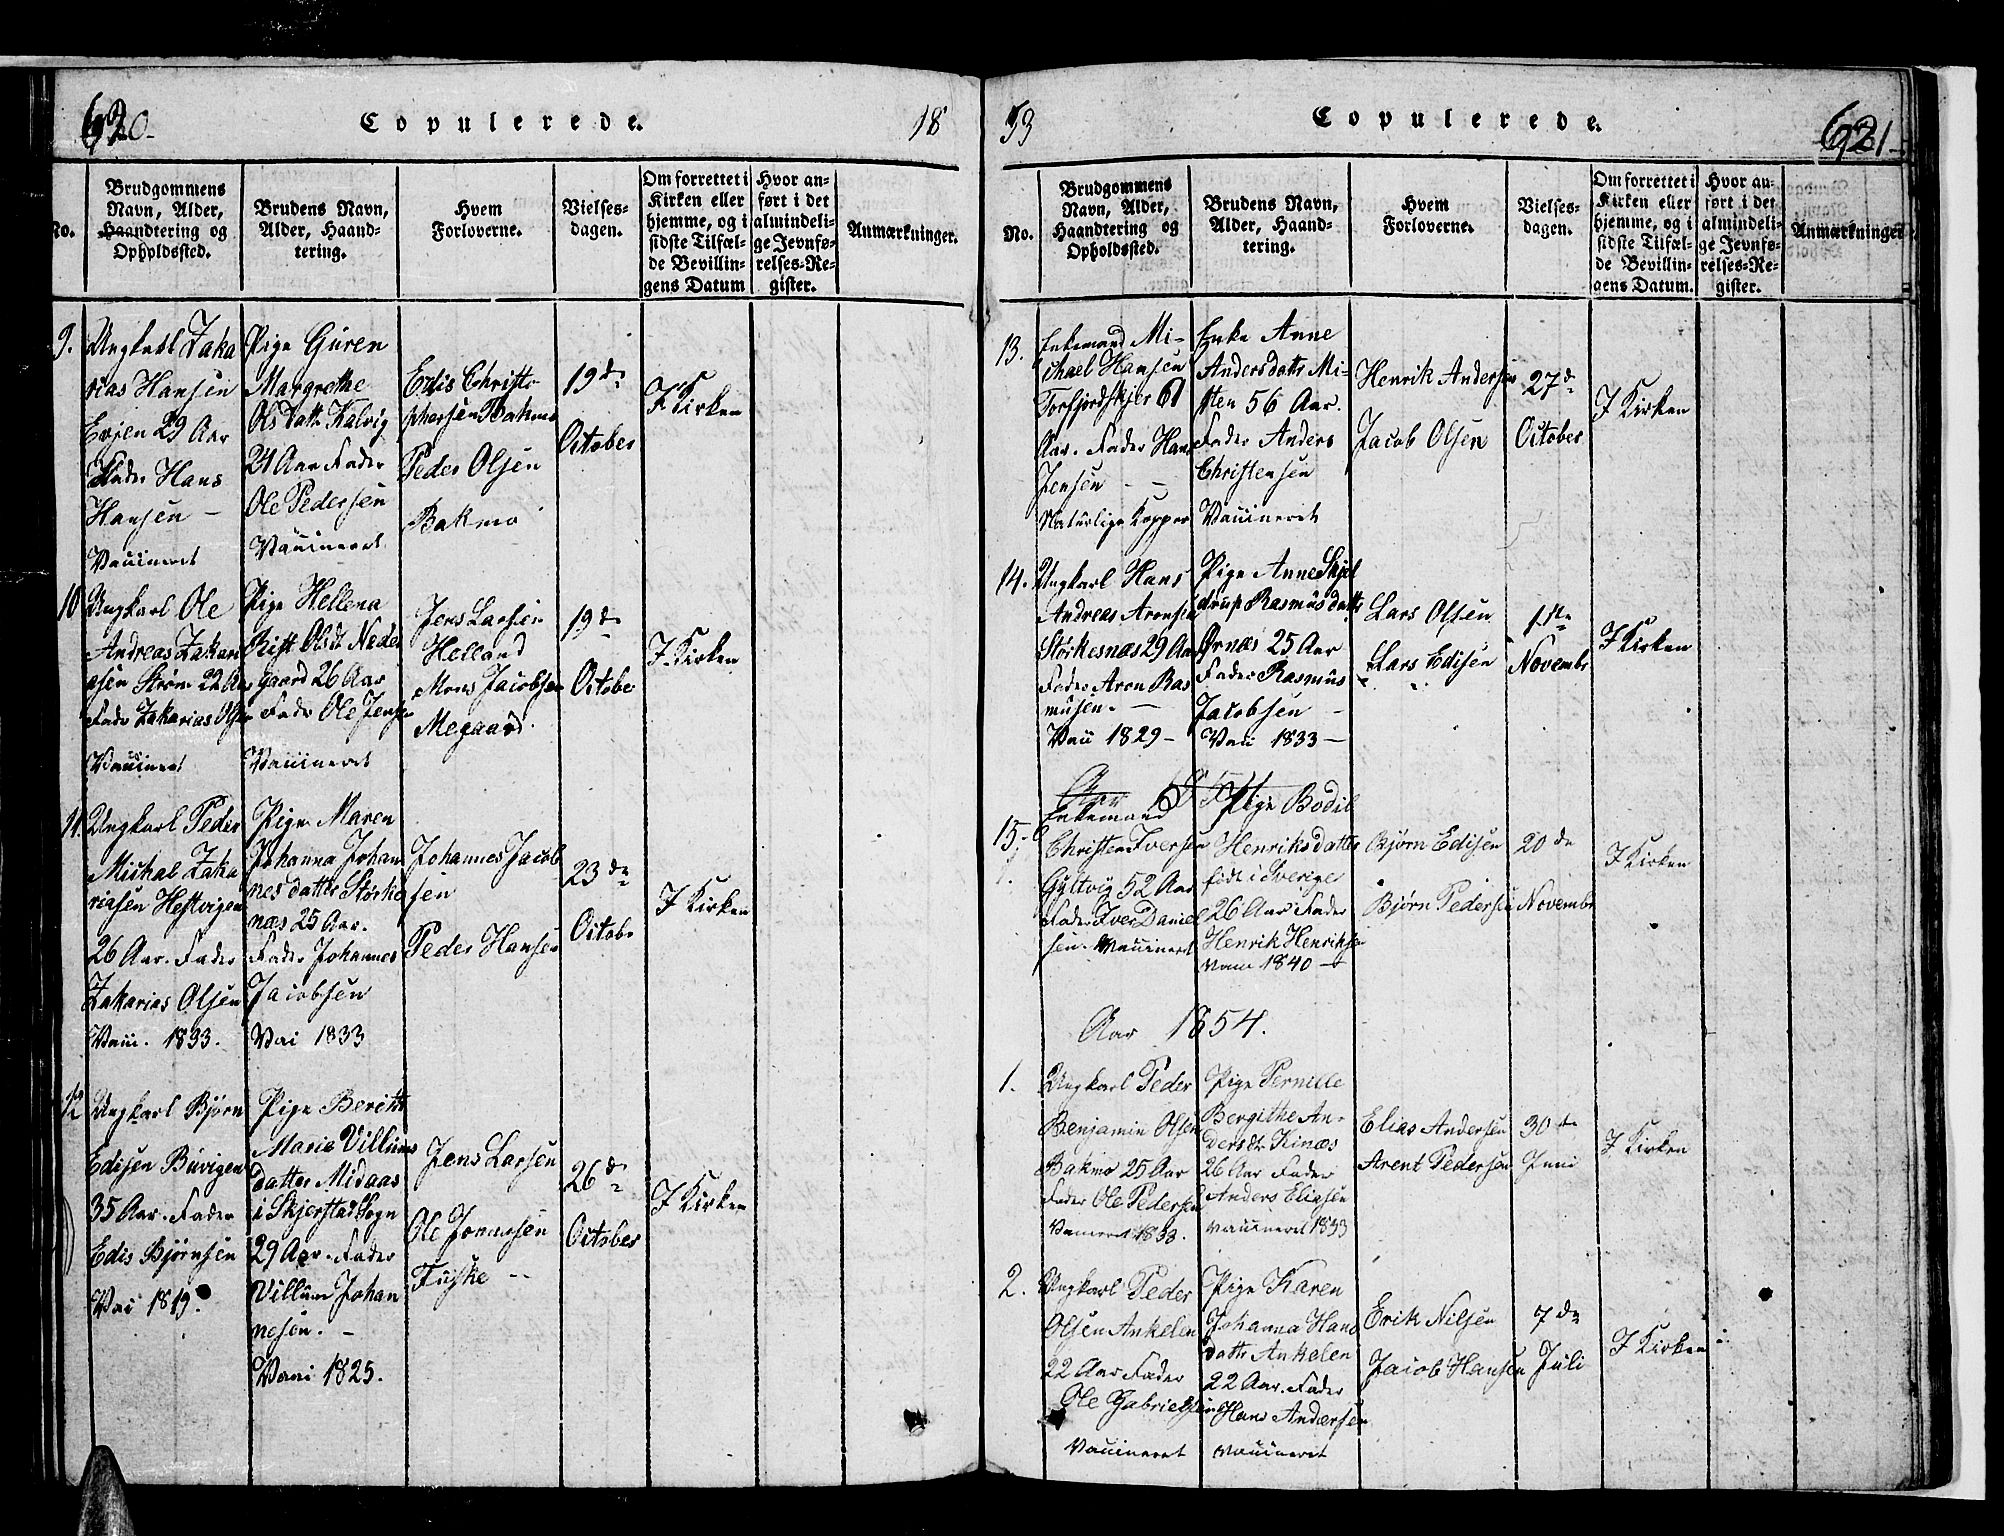 620.
Copulerede.
18
No.
Brudgommens
Navn, Alder,
Haandtering og
Opholdssted.
Brudens Navn,
Alder, Haand-
tering.
Hvem
Forloverne.
Vielses-
dagen.
Om forrettet i
Kirken eller
hjemme, og i
sidste Tilfæl-
de Bevillin-
gens Datum
Hvor an-
ført i det
almindeli-
ge Jevnfø-
relses-Re-
gister.
Anmærkninger.
9.
Ungkarl Zaka
rias Hansen
Evjen 29 Aar
Fader Hans
Hansen -
Vaccineret
Pige Guren
Margrethe
Olsdatt. Kalvig
21 Aar Fader
Ole Pedersen
Vaccineret
Edis Christo
phersen Bakmo
Peder Olsen
Bakmo
19de
October
I Kirken
10
Ungkarl Ole
Andreas Zakari
asen Strøm 22 Aar
Fader Zakarias Olsen
Vaccineret
Pige Hellena
Rist Olsdt Neder
gaard 26 Aar
Fader Ole Jensen
Vaccineret
Jens Larsen
Helland
Mons Jacobsen
Megaard.
19de
Octobe
I Kirken
11.
Ungkarl Peder
Michal Zaka
riasen Hestvigen
26 Aar. Fader
Zakarias Olsen
Vacci. 1833.
Pige Maren
Johanna Johan
nesdatter Størke
næs 25 Aar.
Fader Johannes
Jacobsen
Vaci 1833
Johannes Jacob
sen
Peder Hansen
23de
Octobr
I Kirken
12
Ungkarl Bjørn
Edisen Buvigen
35 Aar. Fader
Edis Bjørnsen
Vaci 1819.
Pige Berith
Maria Villums
datter Midaas
i Skjerstad Sogn
29 Aar. Fader
Villum Johan
nesen. -
Vacci 1825.
Jens Larsen
Ole Jonassen
Fuske --
26de
October
I Kirken
53
Copulerede.
621
No.
Brudgommens
Navn, Alder,
Haandtering og
Opholdssted.
Brudens Navn,
Alder, Haand-
tering.
Hvem
Forloverne.
Vielses-
dagen.
Om forrettet i
Kirken eller
hjemme, og i
sidste Tilfæl-
de Bevillin-
gens Datum.
Hvor an-
ført i det
almindeli-
ge Jevnfø-
relses-Re-
gister.
Anmærkninger
13.
Enkemand Mi-
chael Hansen
Torfjordskjer 61
Aar. Fader Hans
Jensen - -
Naturlige Kopper
Enke Anne
Andersdatts Mi-
sten 56 Aar.
Fader Anders
Christensen
Vaccineret
Henrik Andersen
Jacob Olsen
27de
October
I Kirken
14.
Ungkarl Hans
Andreas Aronsen
Størkesnæs 29 Aar
Fader Aron Ras
musen. -
Vacc 1829 -
Pige Anne Skjel
strup Rasmusdatter
Ørnæs 25 Aar
Fader Rasmus
Jacobsen -
Vacc 1833 -
Lars Olsen
Lars Edisen
1ste
Novembr
I Kirken
15.
Enkemand
Christen Iversen
Gyltvig 52 Aar
Fader Iver Daniel
sen. Vaccineret
Pige Bodil
Henriksdatter
født i Sverige
26 Aar Fader
Henrik Henriksen
Vacc 1840 -
Bjørn Edisen
Bjørn Pedersen
20de
Novembr
I Kirken
Aar 1854.
1.
Ungkarl Peder
Benjamin Olsen
Bakmo 25 Aar
Fader Ole Pedersen
Vaccineret 1833.
Pige Pernille
Bergithe An-
dersdtr Kinæs
26 Aar Fader
Anders Eliasen
Vaccineret 1833
Elias Andersen
Arent Pedersen
30te
Juni
I Kirken
2.
Ungkarl Peder
Olsen Ankelen
22 Aar Fader
Ole Gabrielsen
Vaccineret
Pige Karen
Johanna Hans
datter Ankelen
22 Aar. Fader
Hans Andersen
Vaccineret
Erik Nilsen
Jacob Hansen
7de
Juli
I Kirken